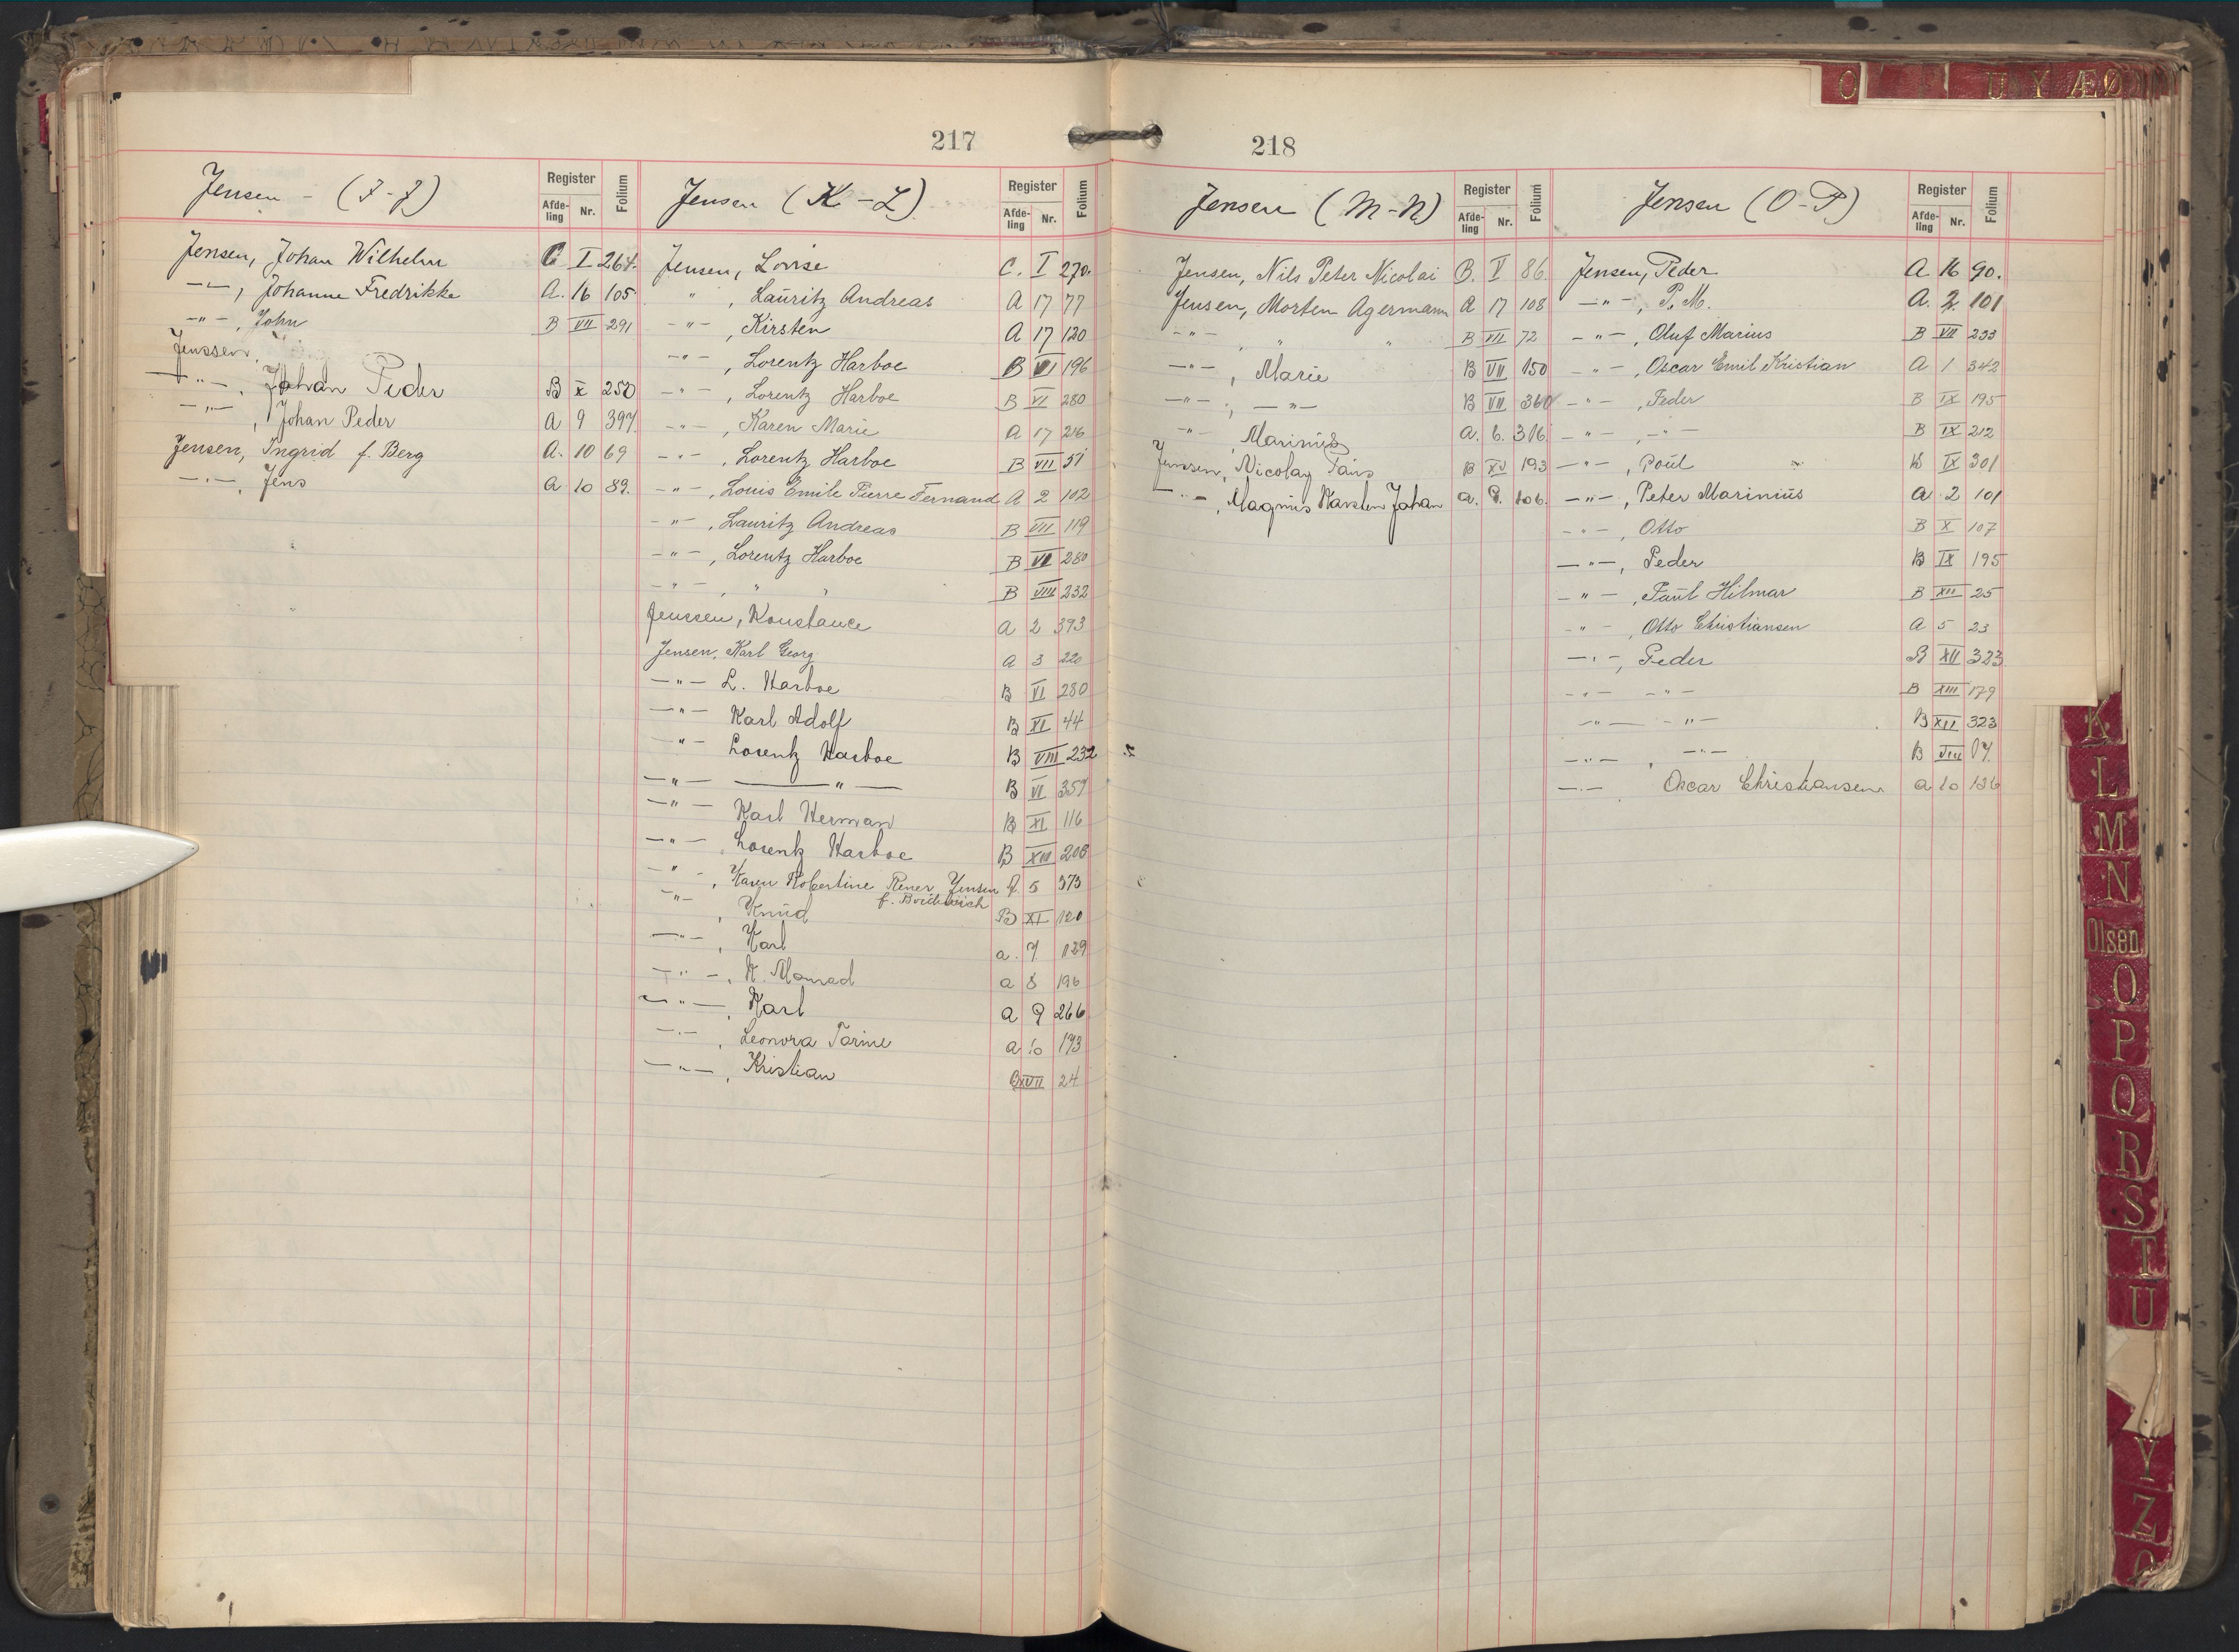 217
Jensen - (I-J)
Register
Afde-
ling
Nr.
Folium
Jensen, Johan Wilhelm C I 264.
-"-, Johanne Fredrikke A. 16 105
-"-, John B VII 291
Jenssen,
-"-, Johan Peder B X 250
-"-, Johan Peder A 9 397.
Jensen, Ingrid f. Berg A. 10 69
-"-, Jens A 10 89.
Jensen (K-L)
Register
Afde-
ling
Nr.
Folium
Jensen, Lovise C. I 270.
" , Lauritz Andreas A 17 77
-"-, Kirsten A 17 120
-"-, Lorentz Harboe B VI 196
-"-, Lorentz Harboe B VI 280
-"-, Karen Marie A 17 216
-"-, Lorentz Harboe B VII 51
-"-, Louis Emile Pierre Fernand A 2 102
-"-, Lauritz Andreas B VII 119
-"-, Lorentz Harboe B VI 280
-"-, " " B VIII 232
Jenssen, Konstance A 2 393
Jensen, Karl Georg A 3 220
-"- L. Harboe B VI 280
-"- Karl Adolf B XI 44
-"- Lorentz Harboe B VIII 232
-"- -"- B VI 357
-"- Karl Herman B XI 116
-"-, Lorentz Harboe B XIII 208
-"-, Karen Robertine Rener Jensen A 5 373
f.
-"-, Knud B XI 120
-"-, Karl a. 7. 129
-"-, K. Monrad a 8 196
-"-, Karl a 9 266
-"-, Leonora Tarine a 10 193
-"-, Kristian B XVII 24
218
Jensen (M-N)
Register
Afde-
ling
Nr.
Folium
Jensen, Nils Peter Nicolai B. V 86
Jensen, Morten Agermann A 17 108
-"-, " " B VII 72
-"-, Marie B VII 150
-"-, -"- B VII 360
-"-, Marinus a. 6. 316
Jenssen, Nicolay B XV 193
-"-, Magnus Karsten Johan a. 9. 106.
Jensen (O-P)
Register
Afde-
ling
Nr.
Folium
Jensen, Peder A 16 90.
-"-, P. M. A. 2. 101
-"-, Oluf Marius B VII 233
-"-, Oscar Emil Kristian A 1 342
-"-, Peder B IX 195
-"-, -"- B IX 212
-"-, Poul B IX 301
-"-, Peter Marinius A 2 101
-"-, Otto B X 107
-"-, Peder B IX 195
-"-, Paul Hilmar B XII 25
-"-, Otto Christiansen A 5 23
-"-, Peder B XII 323
-"- -"- B XIII 179
-"- -"- B XII 323
-"-, -"- B VIII 07.
-"- Oscar Christiansen a 10 136
O
U
Y
Æ
Ø
K
L
M
N
Olsen
O
P
Q
R
S
T
U
Y
Z